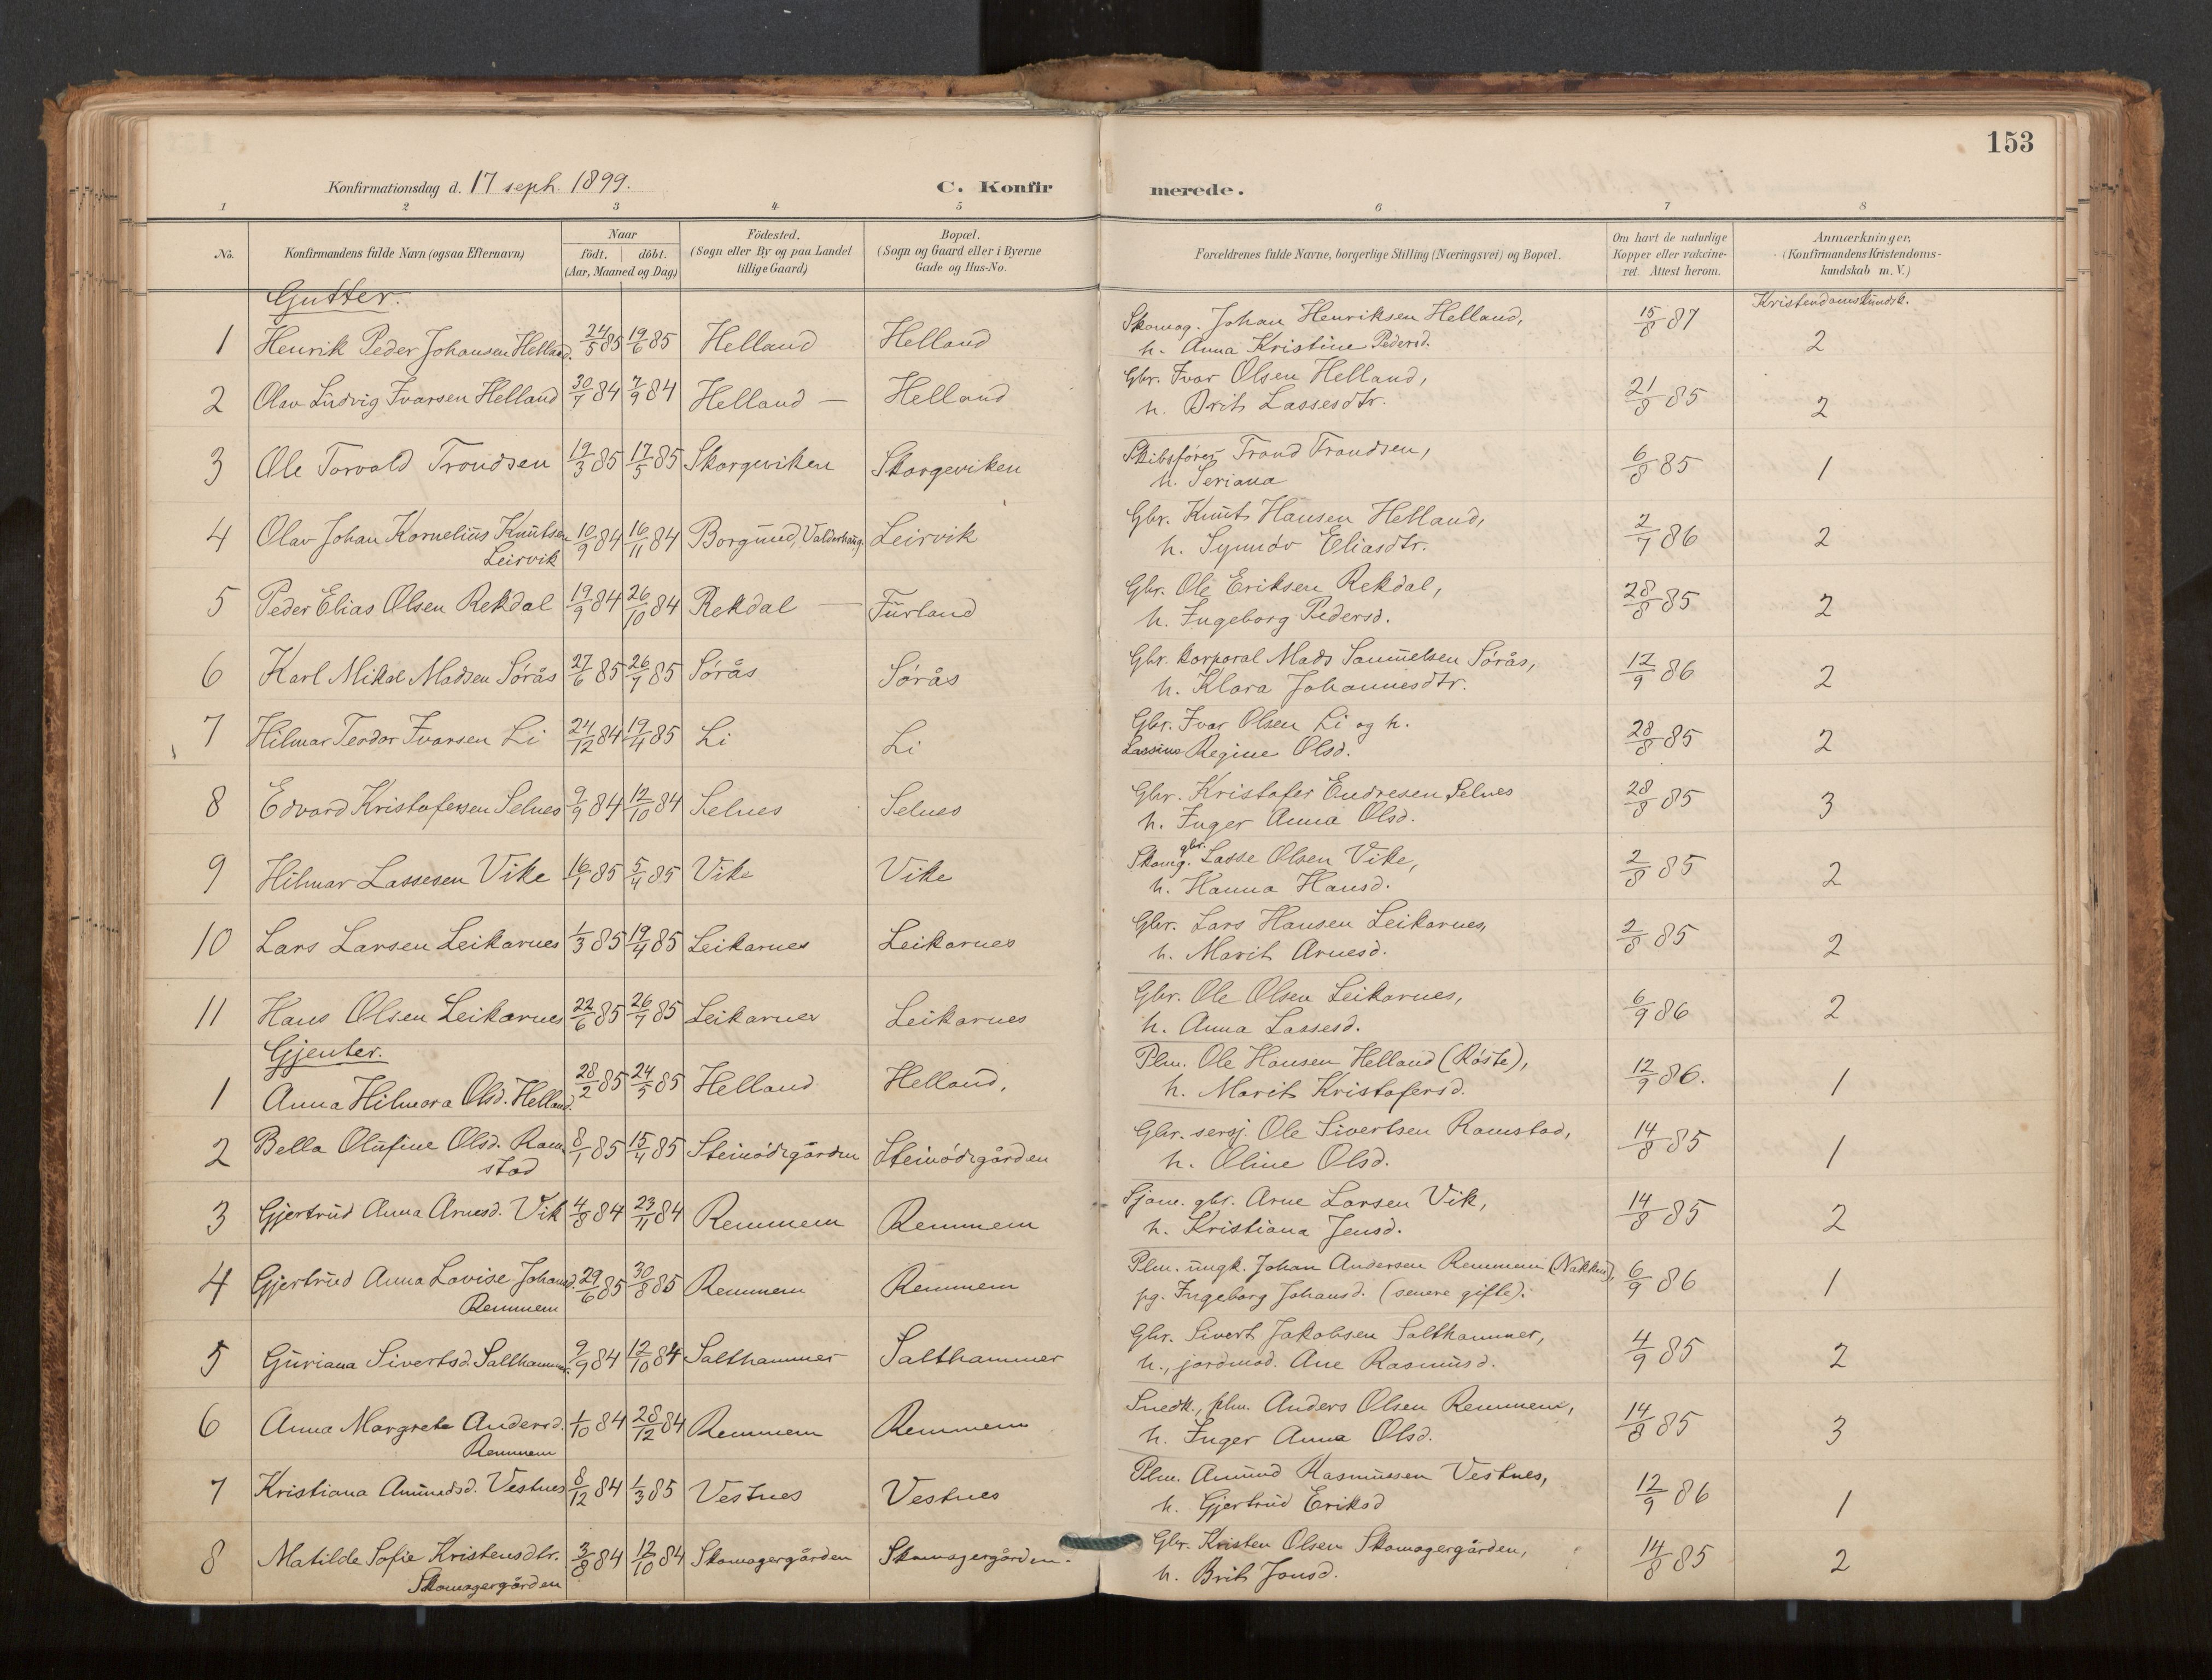 153
Konfirmationsdag d. 17 septb. 1899. C. Konfir merede.
1 2 3 4 5 6 7 8
No. Konfirmandens fulde Navn (ogsaa Efternavn) Naar födt. döbt. (Aar, Maaned og Dag) Födested. (Sogn eller By og paa Landet tillige Gaard) Bopæl. (Sogn og Gaard eller i Byerne Gade og Hus-No. Forældrenes fulde Navne, borgerlige Stilling (Næringsvei) og Bopæl. Om havt de naturlige Kopper eller vakcineret. Attest herom. Anmærkninger. (Konfirmandens Kristendomskundskab m. V.)
Gutter. Kristendomskundsk.
1 Henrik Peder Johansen Helland. 24/5 85 19/6 85 Helland Helland Skomag. Johan Henriksen Helland, 15/8 87 2
h. Anna Kristine Pedersd.
2 Olav Ludvig Ivarsen Helland 30/7 84 7/9 84 Helland — Helland Gbr. Ivar Olsen Helland, 21/8 85 2
h. Brit Lassesdtr.
3 Ole Torvald Trondsen 19/3 85 17/5 85 Skorgeviken Skorgeviken Skibsfører Trond Trondsen, 6/8 85 1
h. Seriana
4 Olav Johan Kornelius Knutsen 10/9 84 16/11 84 Borgund, Valderhaug. Leirvik Gbr. Knut Hansen Helland, 2/7 86 2
Leirvik h. Synnöv Eliasdtr.
5 Peder Elias Olsen Rekdal 19/9 84 26/10 84 Rekdal — Furland Gbr. Ole Eriksen Rekdal, 28/8 85 2
h. Ingeborg Pedersd.
6 Karl Mikal Madsen Sörås 27/6 85 26/7 85 Sörås Sörås Gbr. korporal Mads Samuelsen Sörås, 12/9 86 2
h. Klara Johannesdtr.
7 Hilmar Teodor Ivarsen Li 24/12 84 19/4 85 Li Li Gbr. Ivar Olsen Li og h. 28/8 85 2
Lassine Regine Olsd.
8 Edvard Kristofersen Selnes 9/9 84 12/10 84 Selnes Selnes Gbr. Kristofer Endresen Selnes 28/8 85 3
h. Inger Anna Olsd.
9 Hilmar Lassesen Vike 16/1 85 5/4 85 Vike Vike Skomg. gbr. Lasse Olsen Vike, 2/8 85 2
h. Hanna Hansd.
10 Lars Larsen Leikarnes 1/3 85 19/4 85 Leikarnes Leikarnes Gbr. Lars Hansen Leikarnes, 2/8 85 2
h. Marit Arnesd.
11 Hans Olsen Leikarnes 22/6 85 26/7 85 Leikarnes Leikarnes Gbr. Ole Olsen Leikarnes, 6/9 86 2
h. Anna Lassesd.
Gjenter.
1 Anna Hilmara Olsd. Helland. 28/2 85 24/5 85 Helland Helland, Plm. Ole Hansen Helland (Röste), 12/9 86. 1
h. Marit Kristofersd.
2 Bella Olufine Olsd. Ram- 8/1 85 15/4 85 Steinödegården Steinödegården Gbr. sersj. Ole Sivertsen Ramstad, 14/8 85 1
stad h. Oline Olsd.
3 Gjertrud Anna Arnesd. Vik 4/8 84 23/11 84 Remmem Remmem Sjöm. gbr. Arne Larsen Vik, 14/8 85 2
h. Kristiana Jensd.
4 Gjertrud Anna Lovise Johansd. 29/6 85 30/8 85 Remmem Remmem Plm. ungk. Johan Andersen Remmem (Nakken), 6/9 86 1
Remmem pg. Ingeborg Johansd. (senere gifte).
5 Guriana Sivertsd. Salthammer. 9/9 84 12/10 84 Salthammer Salthammer Gbr. Sivert Jakobsen Salthammer, 4/9 85 2
h., jordmod. Ane Rasmusd.
6 Anna Margrete Andersd. 1/10 84 28/12 84 Remmem Remmem Snedk., plm. Anders Olsen Remmem, 14/8 85 3
Remmem h. Inger Anna Olsd.
7 Kristiana Amundsd. Vestnes 8/12 84 1/3 85 Vestnes Vestnes Plm. Amund Rasmussen Vestnes, 12/9 86 1
h. Gjertrud Eriksd
8 Matilde Sofie Kristensdtr. 3/8 84 12/10 84 Skomagergården Skomagergården. Gbr. Kristen Olsen Skomagergården, 14/8 85 2
Skomagergården h. Brit Jonsd.